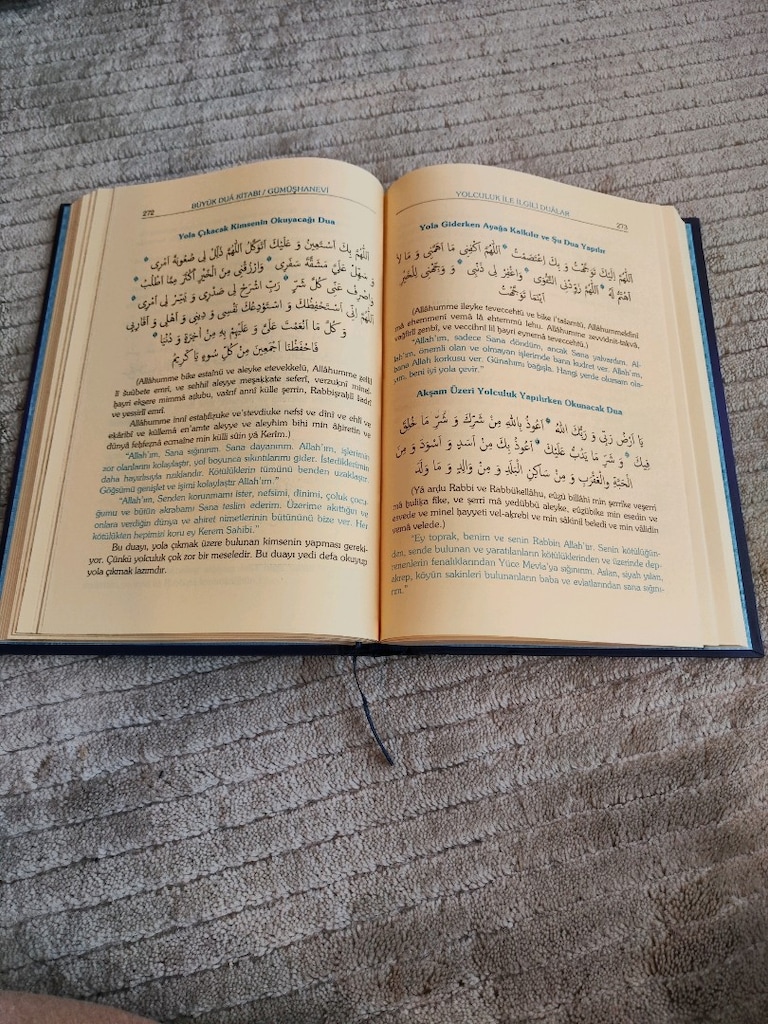 272
BÜYÜK DUÂ KİTABI / GÜMÜŞHANEVİ
Yola Çıkacak Kimsenin Okuyacağı Dua
اَللّٰهُمَّ بِكَ اَسْتَعِينُ وَ عَلَيْكَ اَتَوَكَّلُ اَللّٰهُمَّ ذَلِّلْ لِى صُعُوبَةَ اَمْرِى *
وَ سَهِّلْ عَلَىَّ مَشَقَّةَ سَفَرِى * وَارْزُقْنِى مِنَ الْخَيْرِ اَكْثَرَ مِمَّا اَطْلُبُ
وَاصْرِفْ عَنِّى كُلَّ شَرٍّ * رَبِّ اشْرَحْ لِى صَدْرِى وَ يَسِّرْ لِى اَمْرِى *
اَللّٰهُمَّ اِنِّى اَسْتَحْفِظُكَ وَ اَسْتَوْدِعُكَ نَفْسِى وَ دِينِى وَ اَهْلِى وَ اَقَارِبِى
وَ كُلَّ مَا اَنْعَمْتَ عَلَىَّ وَ عَلَيْهِمْ بِهِ مِنْ اٰخِرَةٍ وَ دُنْيَا *
فَاحْفَظْنَا اَجْمَعِينَ مِنْ كُلِّ سُوءٍ يَا كَرِيمُ
(Allâhumme bike estaînü ve aleyke etevekkelü, Allâhumme zellil
lî suûbete emrî, ve sehhil aleyye meşakkate seferî, verzuknî minel-
hayri eksere mimmâ atlubu, vasrif annî külle şerrin, Rabbişrahlî sadrî
ve yessirlî emrî.
Allâhumme innî estahfizuke ve'stevdiuke nefsî ve dînî ve ehlî ve
ekâribî ve küllemâ en'amte aleyye ve aleyhim bihî min âhiretin ve
dünyâ fahfeznâ ecmaîne min külli sûin yâ Kerîm.)
"Allah'ım, Sana sığınırım. Sana dayanırım. Allah'ım, işlerimin
zor olanlarını kolaylaştır, yol boyunca sıkıntılarımı gider. İstediklerimin
daha hayırlısıyla rızıklandır. Kötülüklerin tümünü benden uzaklaştır.
Göğsümü genişlet ve işimi kolaylaştır Allah'ım."
"Allah'ım, Senden korunmamı ister, nefsimi, dinimi, çoluk çocu-
ğumu ve bütün akrabamı Sana teslim ederim. Üzerime akıttığın ve
onlara verdiğin dünya ve ahiret nimetlerinin bütününü bize ver. Her
kötülükten hepimizi koru ey Kerem Sahibi."
Bu duayı, yola çıkmak üzere bulunan kimsenin yapması gereki-
yor. Çünkü yolculuk çok zor bir meseledir. Bu duayı yedi defa okuyup
yola çıkmak lazımdır.
YOLCULUK İLE İLGİLİ DUÂLAR
273
Yola Giderken Ayağa Kalkılır ve Şu Dua Yapılır
اَللّٰهُمَّ اِلَيْكَ تَوَجَّهْتُ وَ بِكَ اعْتَصَمْتُ * اَللّٰهُمَّ اكْفِنِى مَا اَهَمَّنِى وَ مَا لَا
اَهْتَمُّ لَهُ * اَللّٰهُمَّ زَوِّدْنِى التَّقْوٰى * وَاغْفِرْ لِى ذَنْبِى * وَ وَجِّهْنِى لِلْخَيْرِ
اَيْنَمَا تَوَجَّهْتُ
(Allâhumme ileyke teveccehtü ve bike i'tasamtü, Allâhummekfinî
mâ ehemmenî vemâ lâ ehtemmü lehu. Allâhumme zevvidnit-takvâ,
vağfirlî zenbî, ve veccihnî lil hayri eynemâ teveccehtü.)
"Allah'ım, sadece Sana döndüm, ancak Sana yalvardım. Al-
lah'ım, önemli olan ve olmayan işlerimde bana kudret ver. Allah'ım,
bana Allah korkusu ver. Günahımı bağışla. Hangi yerde olursam ola-
yım, beni iyi yola çevir."
Akşam Üzeri Yolculuk Yapılırken Okunacak Dua
يَا اَرْضُ رَبِّى وَ رَبُّكِ اللّٰهُ * اَعُوذُ بِاللّٰهِ مِنْ شَرِّكِ وَ شَرِّ مَا خُلِقَ
فِيكِ * وَ شَرِّ مَا يَدُبُّ عَلَيْكِ * اَعُوذُ بِكَ مِنْ اَسَدٍ وَ اَسْوَدَ وَ مِنَ
الْحَيَّةِ وَالْعَقْرَبِ وَ مِنْ سَاكِنِ الْبَلَدِ وَ مِنْ وَالِدٍ وَ مَا وَلَدَ
(Yâ ardu Rabbi ve Rabbükellâhu, eûzü billâhi min şerrike veşerri
mâ hulika fîke, ve şerri mâ yedübbü aleyke, eûzübike min esedin ve
esvede ve minel hayyeti vel-akrebi ve min sâkinil beledi ve min vâlidin
vemâ velede.)
"Ey toprak, benim ve senin Rabbin Allah'tır. Senin kötülüğün-
den, sende bulunan ve yaratılanların kötülüklerinden ve üzerinde dep-
renenlerin fenalıklarından Yüce Mevla'ya sığınırım. Aslan, siyah yılan,
akrep, köyün sakinleri bulunanların baba ve evlatlarından sana sığını-
rım."